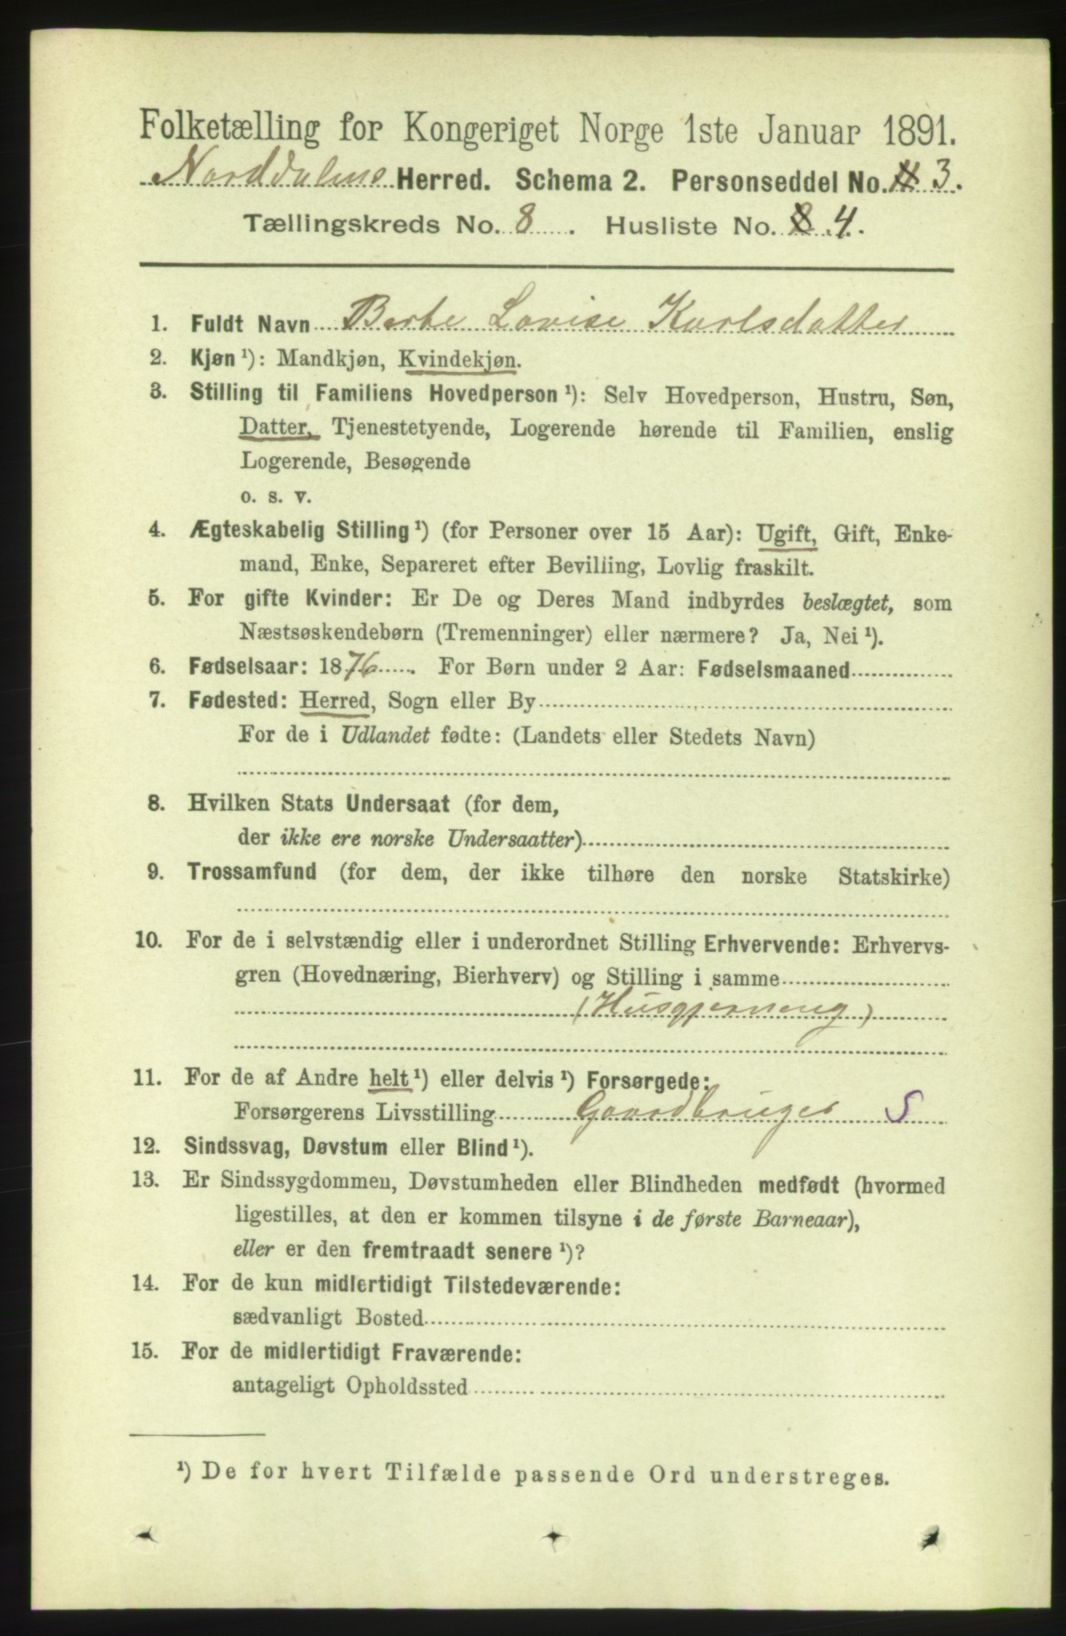 Folketælling for Kongeriget Norge 1ste Januar 1891.
Norddalens Herred. Schema 2. Personseddel No. 3.
Tællingskreds No. 8. Husliste No. 8 4.
1. Fuldt Navn Berte Lovise Karlsdatter
2. Kjøn ¹): Mandkjøn, Kvindekjøn.
3. Stilling til Familiens Hovedperson ¹): Selv Hovedperson, Hustru, Søn,
Datter, Tjenestetyende, Logerende hørende til Familien, enslig
Logerende, Besøgende
o. s. v.
4. Ægteskabelig Stilling ¹) (for Personer over 15 Aar): Ugift, Gift, Enke-
mand, Enke, Separeret efter Bevilling, Lovlig fraskilt.
5. For gifte Kvinder: Er De og Deres Mand indbyrdes beslægtet, som
Næstsøskendebørn (Tremenninger) eller nærmere? Ja, Nei ¹).
6. Fødselsaar: 1876. For Børn under 2 Aar: Fødselsmaaned
7. Fødested: Herred, Sogn eller By
For de i Udlandet fødte: (Landets eller Stedets Navn)
8. Hvilken Stats Undersaat (for dem,
der ikke ere norske Undersaatter)
9. Trossamfund (for dem, der ikke tilhøre den norske Statskirke)
10. For de i selvstændig eller i underordnet Stilling Erhvervende: Erhvervs-
gren (Hovednæring, Bierhverv) og Stilling i samme
(Husgjerneng)
11. For de af Andre helt ¹) eller delvis ¹) Forsørgede:
Forsørgerens Livsstilling Gaardbruger S
12. Sindssvag, Døvstum eller Blind ¹).
13. Er Sindssygdommen, Døvstumheden eller Blindheden medfødt (hvormed
ligestilles, at den er kommen tilsyne i de første Barneaar),
eller er den fremtraadt senere ¹)?
14. For de kun midlertidigt Tilstedeværende:
sædvanligt Bosted
15. For de midlertidigt Fraværende:
antageligt Opholdssted
¹) De for hvert Tilfælde passende Ord understreges.